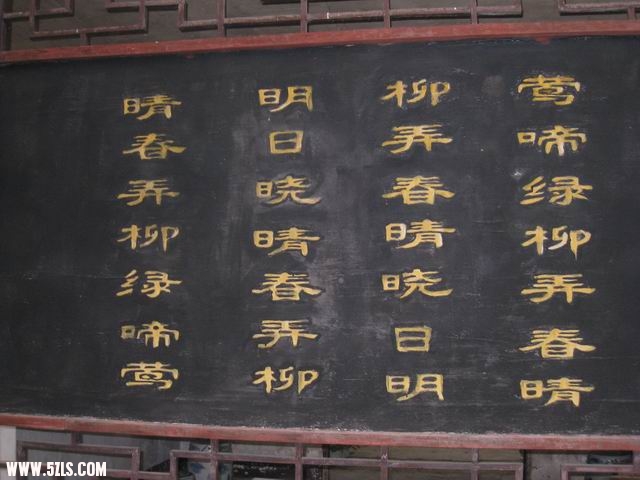 莺啼绿柳弄春晴
柳弄春晴晓日明
明日晓晴春弄柳
晴春弄柳绿啼莺
WWW.5ZLS.COM